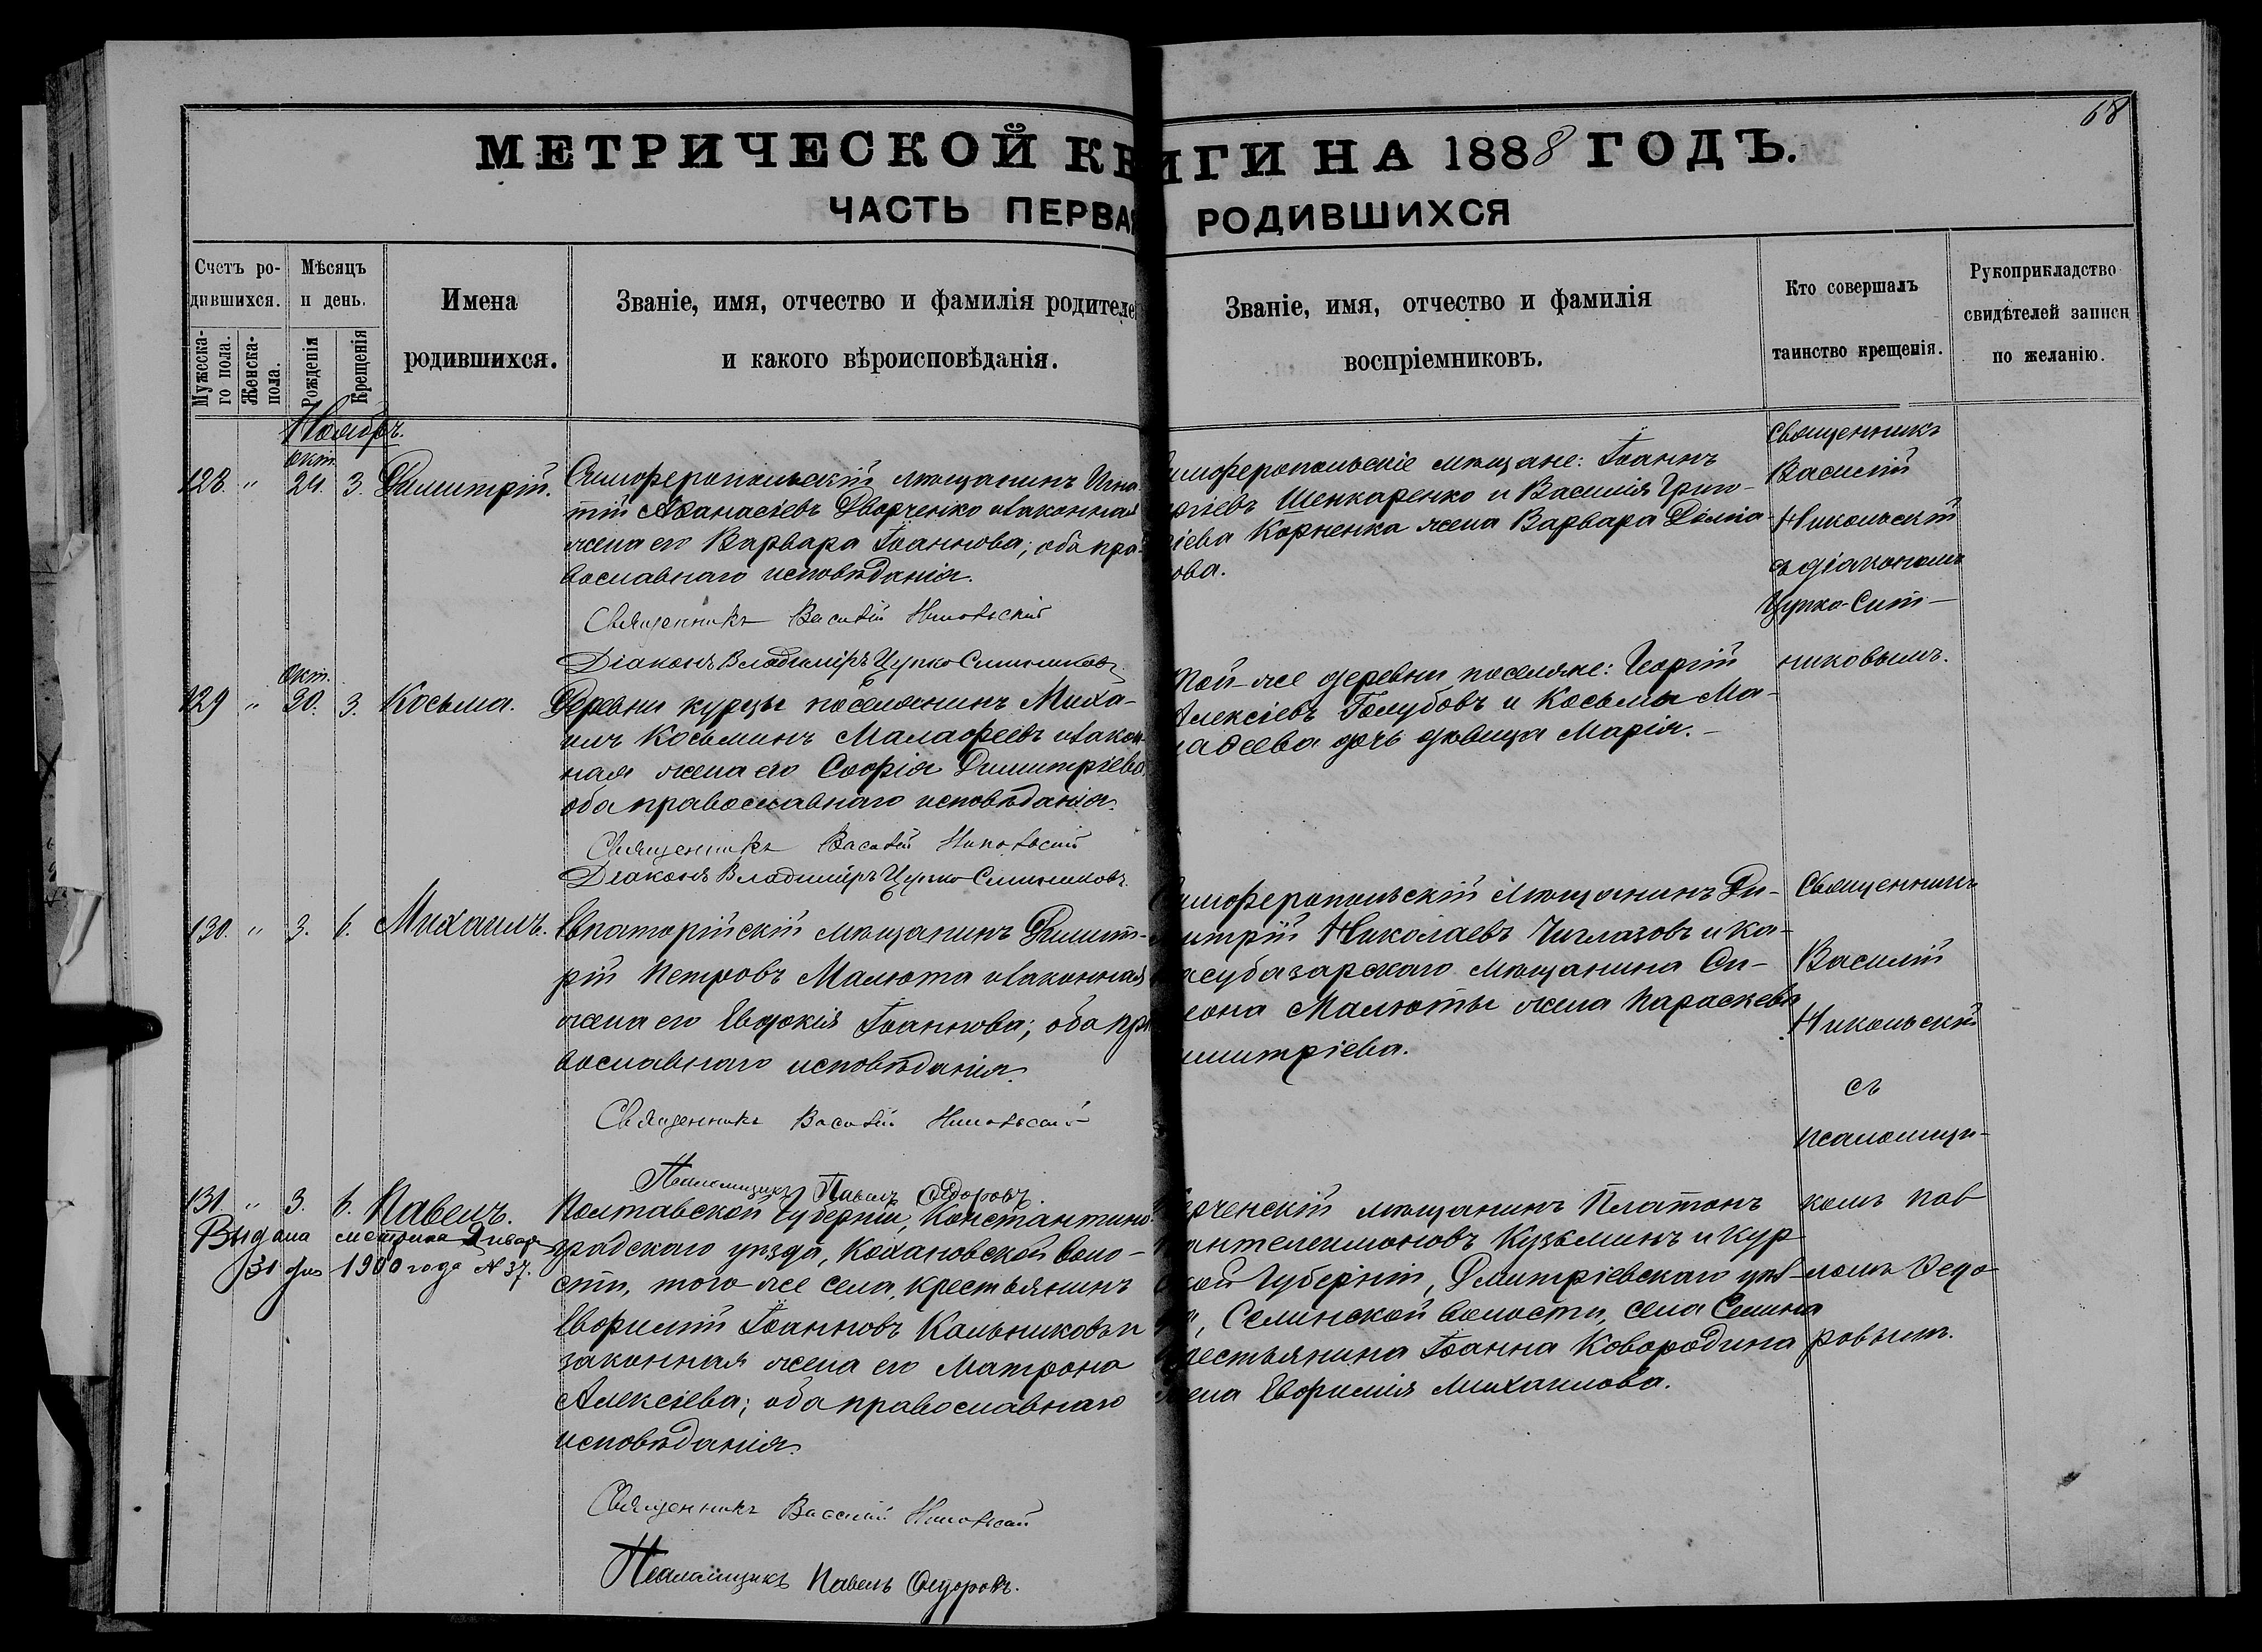 68
МЕТРИЧЕСКОЙ КНИГИ НА 1888 ГОДЪ.
ЧАСТЬ ПЕРВАЯ РОДИВШИХСЯ
Счетъ ро-
дившихся.
Мужеска-
го пола.
Женска-
пола.
Мѣсяцъ
и день.
Рожденія
Крещенія
Имена
родившихся.
Званіе, имя, отчество и фамилія родителе
и какого вѣроисповѣданія.
Званіе, имя, отчество и фамилія
воспріемниковъ.
Кто совершалъ
таинство крещенія.
Рукоприкладство
свидѣтелей записи
по желанію.
Ноябрь.
окт.
128. " 24. 3. Димитрій.
Симферопольскій мѣщанинъ Игна-
тій Аѳанасіевъ Дворченко и законная
жена его Варвара Іоаннова; оба пра-
вославнаго исповѣданія.
Священникъ Василій Никольскій
Діаконъ Владиміръ Цупко-Ситниковъ
имферопольскіе мѣщане: Іоаннъ
ргіевъ Шенкаренко и Василія Григо-
ріева Корненка жена Варвара Доміа-
ова.
Священникъ
Василій
Никольскій
съ діакономъ
Цупко-Сит-
никовымъ.
окт.
129 " 30. 3. Косьма.
Деревни курцы поселянинъ Миха-
илъ Косьминъ Малафеевъ и закон-
ная жена его Софія Димитріева
оба православнаго исповѣданія.
Священникъ Василій Никольскій
Діаконъ Владиміръ Цупко-Ситниковъ.
Той-же деревни поселяне: Георгій
Алексіевъ Голубовъ и Косьмы Ма-
лафеева дочь дѣвица Марія.
130. " 3. 6. Михаилъ.
Евпаторійскій мѣщанинъ Димит-
рій Петровъ Малюта и законная
жена его Евдокія Іоаннова; оба пра
вославнаго исповѣданія.
Священникъ Василій Никольскій
Псаломщикъ Павелъ Ѳедоровъ.
Симферопольскій мѣщанинъ Ди-
митрій Николаевъ Чиглазовъ и ка-
расубазарскаго мѣщанина Си-
меона Малюты жена Параскева
имитріева.
Священникъ
Василій
Никольскій
съ
псаломщи-
комъ Пав
ломъ Ѳедо
ровымъ.
131. " 3. 6. Павелъ.
Выдана метрика Января
31 дня 1900 года № 37.
Полтавской Губерніи, Константино-
градскаго уѣзда, Кохановской воло-
сти, того же села, крестьянинъ
Евфимій Іоанновъ Кальниковъ и
законная жена его Матрона
Алексіева; оба православнаго
исповѣданія.
Священникъ Василій Никольскій
Псаломщикъ Павелъ Ѳедоровъ.
Керченскій мѣщанинъ Платонъ
Пантелеимоновъ Кузьминъ и Кур
ской Губерніи, Дмитріевскаго уѣз-
да, Селинской волости, села Селина
крестьянина Іоанна Ковородина
жена Евфимія Михаилова.